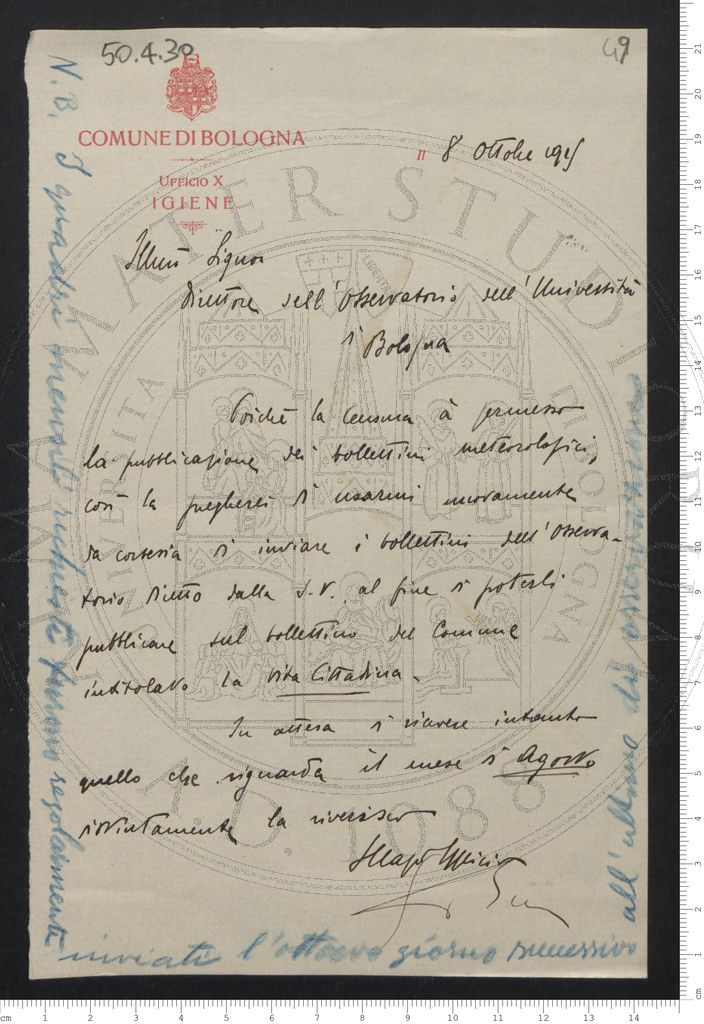 50.4.30
49
COMUNE DI BOLOGNA
UFFICIO X
IGIENE
n 8 Ottobre 1915
Illmo Signor
Direttore dell'Osservatorio dell'Università
di Bologna
Poichè la Censura à permesso
la pubblicazione dei bollettini meteorologici,
così la pregherei di usarmi nuovamente
la cortesia di inviare i bollettini dell'Osserva-
torio diretto dalla S.V. al fine di poterli
pubblicare sul bollettino del Comune
intitolato la Vita Cittadina.
In attesa di ricevere intanto
quello che riguarda il mese di Agosto
distintamente la riverisco
Il Capo Ufficio
N.B. I quadri mensili richiesti furono regolarmente
inviati l'ottavo giorno successivo
all'ultima di osservazione
ALMA MATER STUDIORUM
UNIVERSITÀ DI BOLOGNA
A.D. 1088
LIBERTAS
cm 1 2 3 4 5 6 7 8 9 10 11 12 13 14
cm 1 2 3 4 5 6 7 8 9 10 11 12 13 14 15 16 17 18 19 20 21